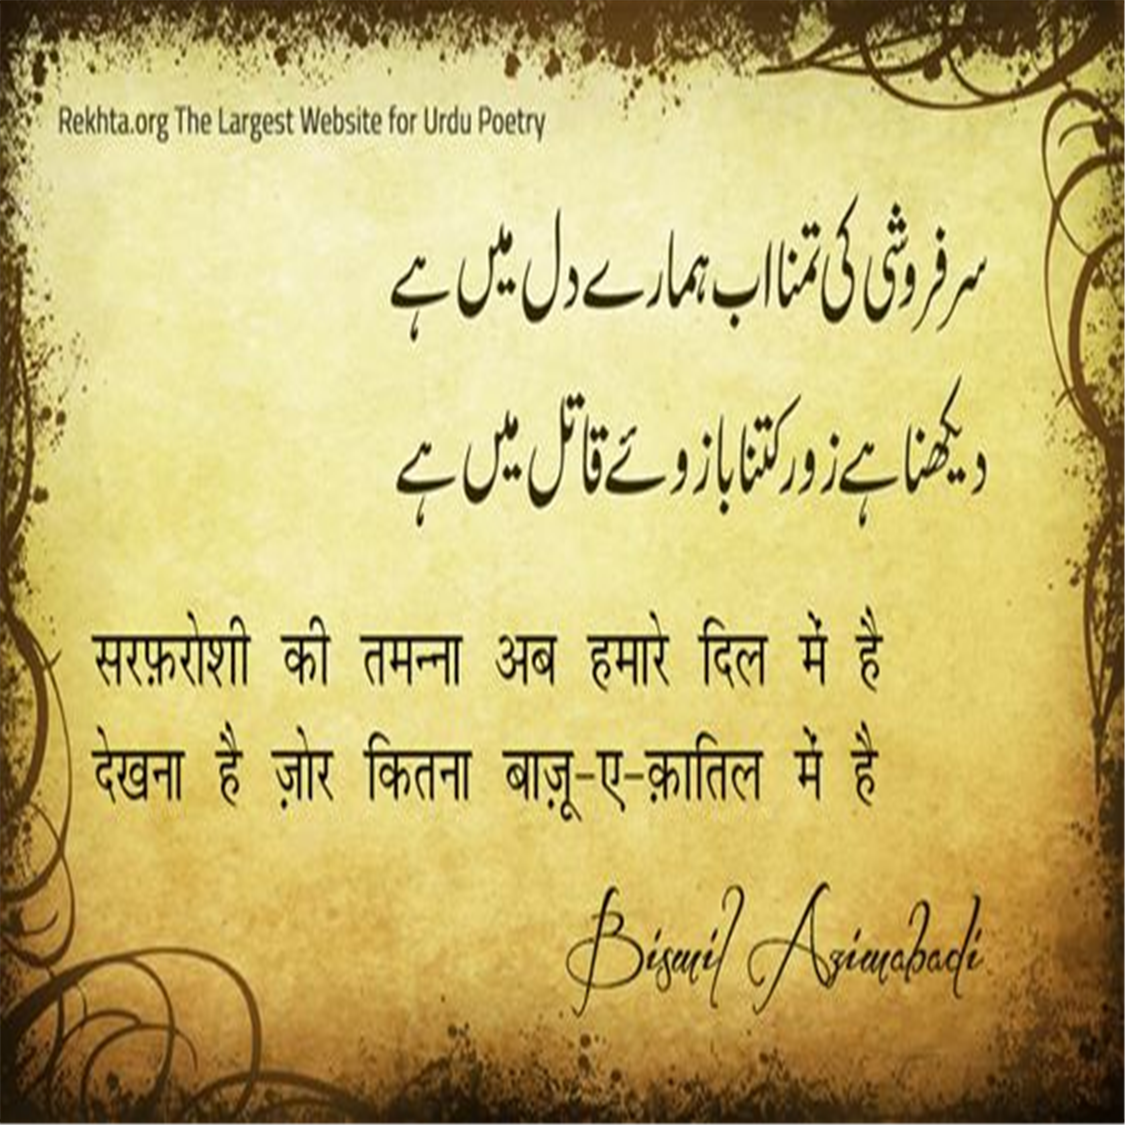 Rekhta.org The Largest Website for Urdu Poetry
سرفروشی کی تمنا اب ہمارے دل میں ہے
دیکھنا ہے زور کتنا بازوئے قاتل میں ہے
सरफ़रोशी की तमन्ना अब हमारे दिल में है
देखना है ज़ोर कितना बाज़ू-ए-क़ातिल में है
Bismil Azimabadi